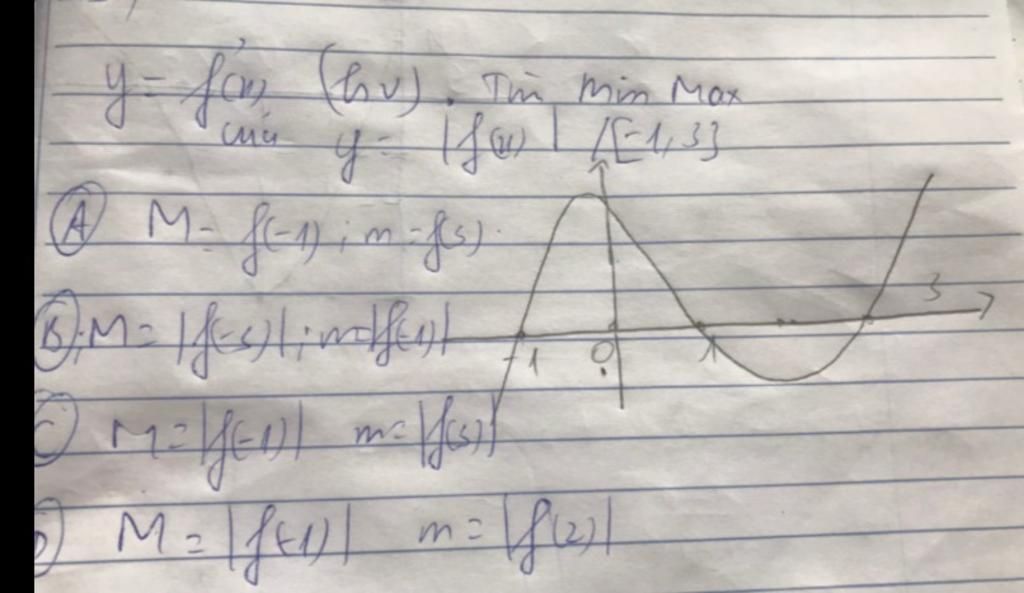 y = f'(x) (hv). Tìm Min Max
của y = |f(x)| /[-1, 3]
A M = f(-1); m = f(3).
B; M = |f(-3)|; m = |f(-1)|
-1 0 1 3
C) M = |f(-1)| m = |f(3)|
D) M = |f(-1)| m = |f(2)|